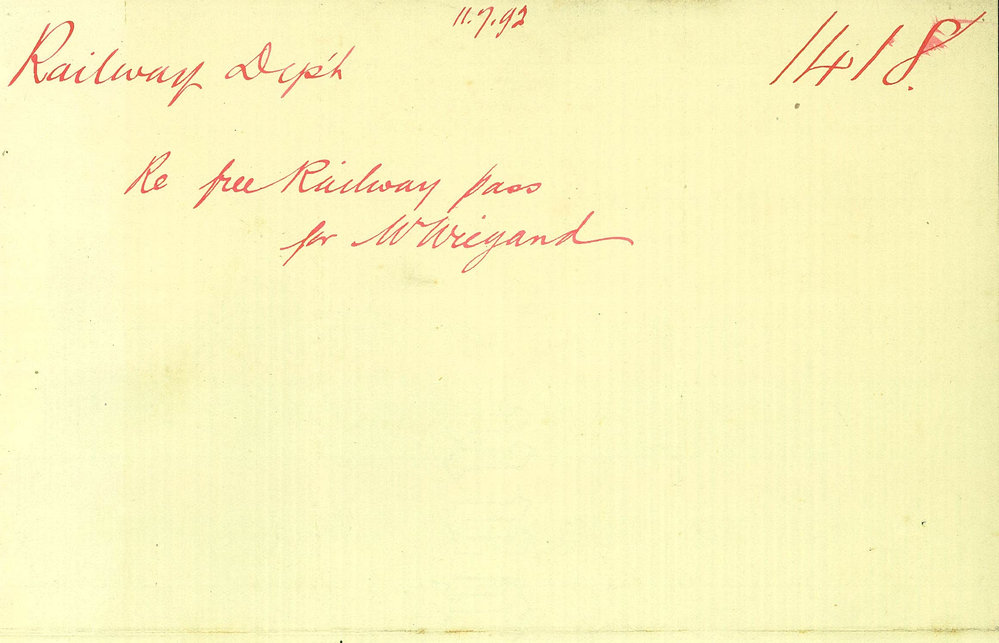 11.7.92
Railway Dep't 1418.
Re free Railway pass
for W Wiegand